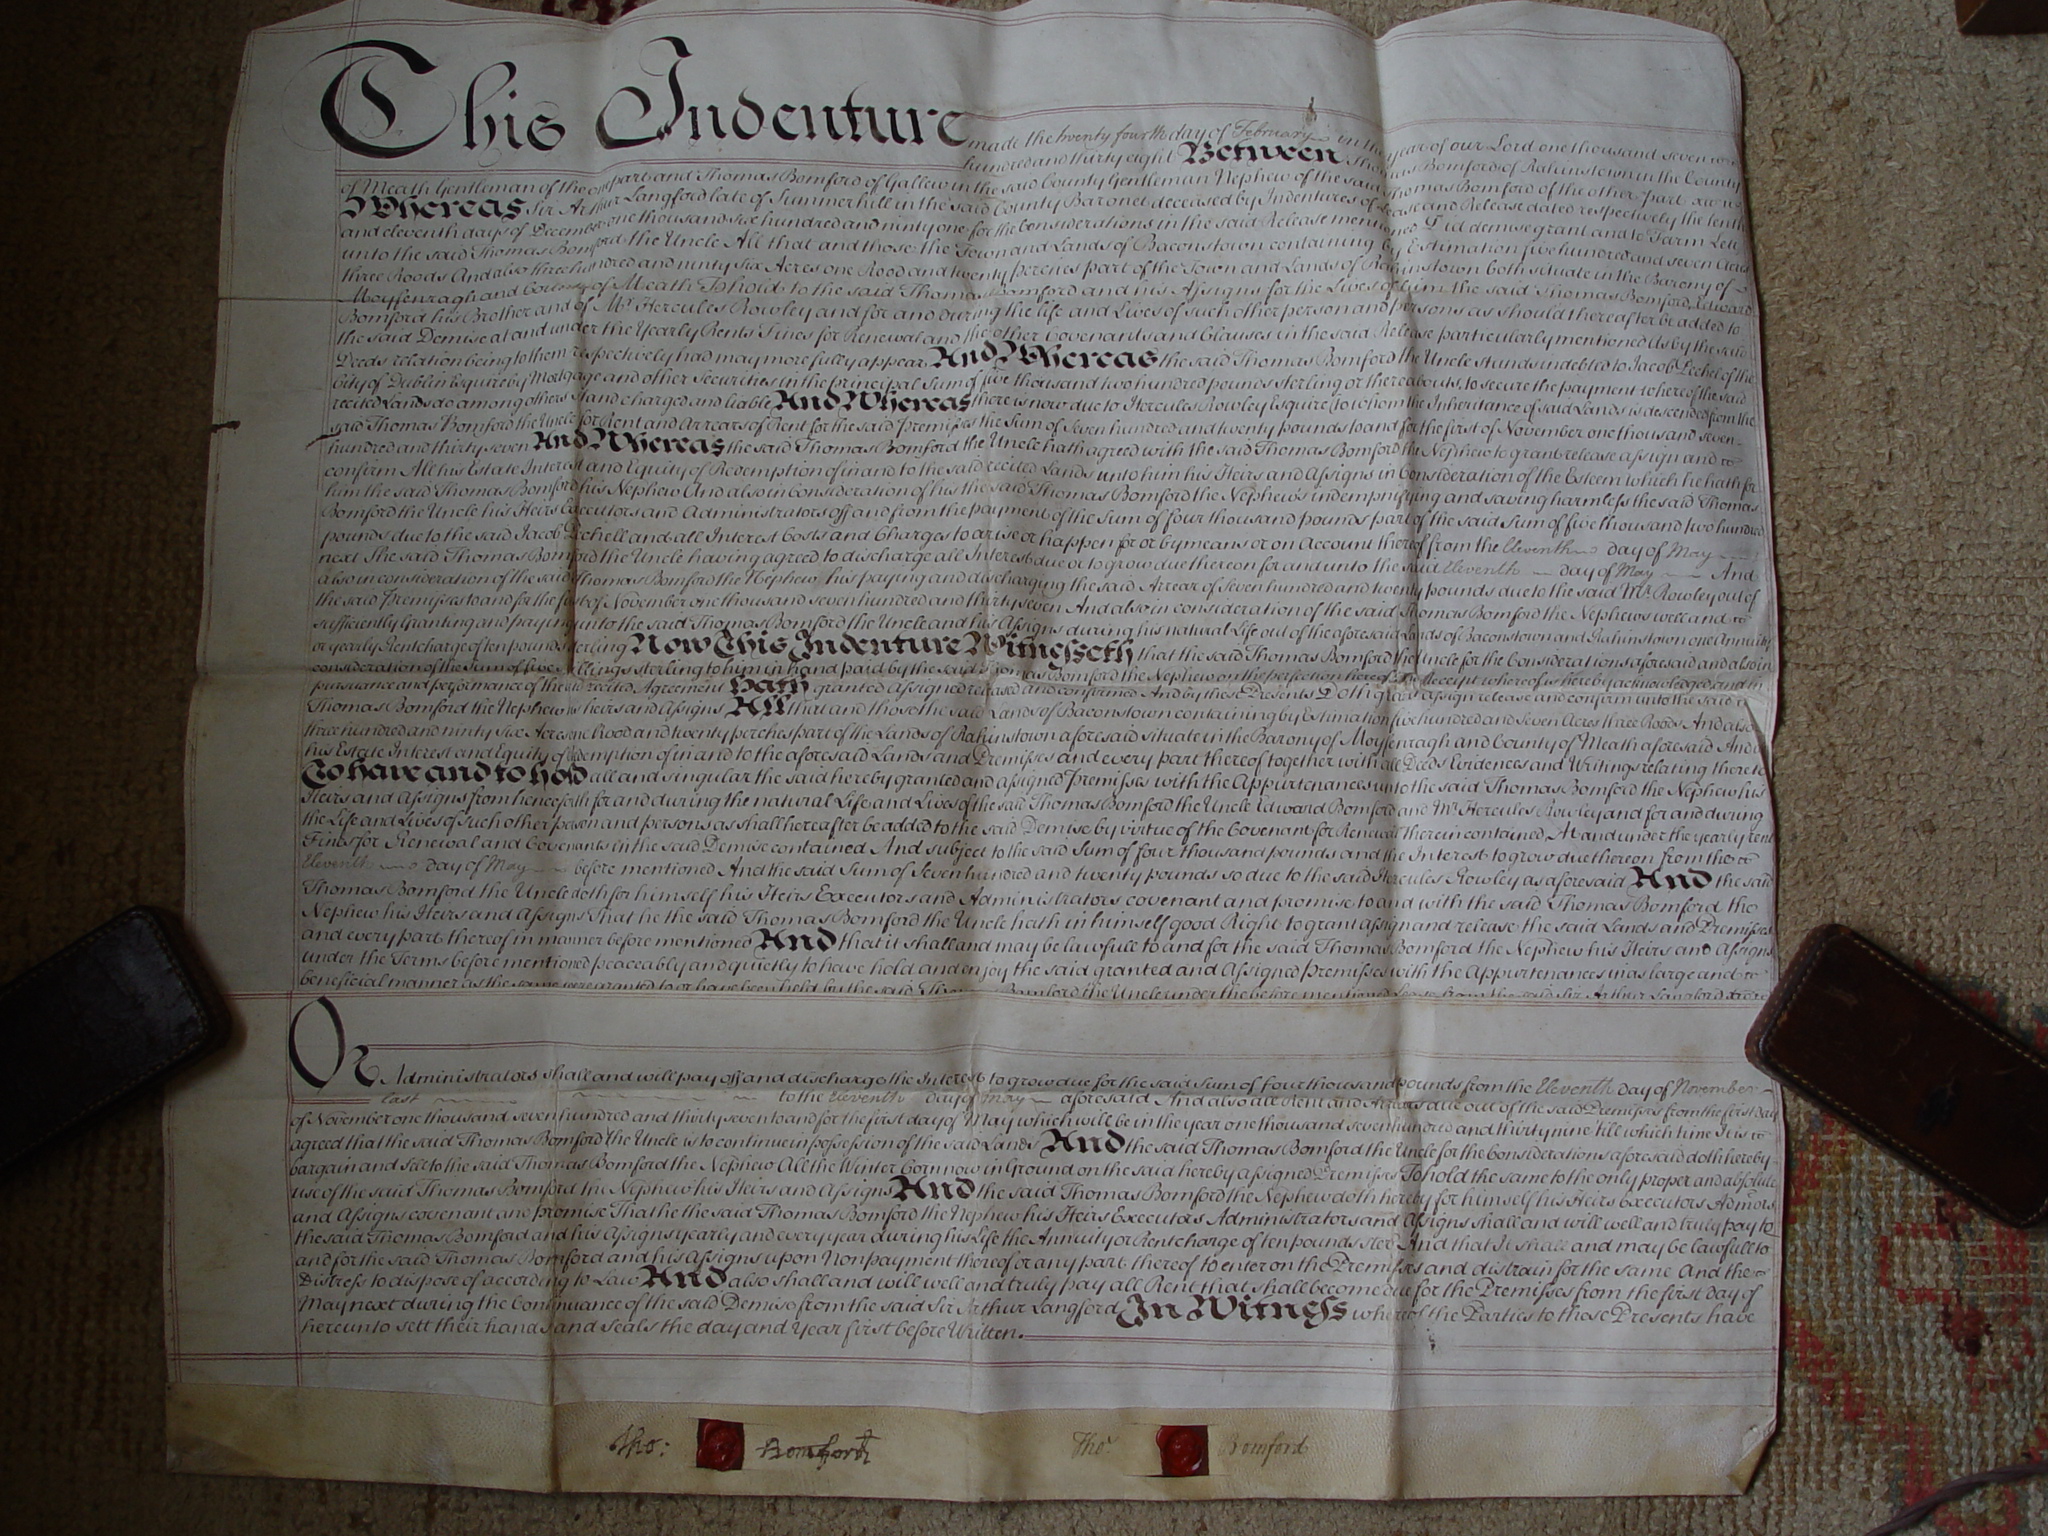 This Indenture made the twenty fourth day of February in the year of our Lord one thousand seven
hundred and thirty eight Between Thomas Bomford of Rahinstown in the County
of Meath Gentleman of the one part and Thomas Bomford of Gallow in the said County Gentleman Nephew of the said Thomas Bomford of the other part
Whereas Sir Arthur Langford late of Summerhill in the said County Baronet deceased by Indentures of Lease and Release dated respectively the tenth
and eleventh days of December one thousand six hundred and ninty one for the considerations in the said Release mentioned Did demise grant and to Farm Lett
unto the said Thomas Bomford the Uncle All that and those the Town and Lands of Baconstown containing by Estimation five hundred and seven Acres
three Roods And also three hundred and ninty six Acres one Rood and twenty perches part of the Town and Lands of Rahinstown both situate in the Barony of
Moyfenragh and County of Meath To hold to the said Thomas Bomford and his Assigns for the Lives of him the said Thomas Bomford, Edward
Bomford his Brother and of Mr. Hercules Rowley and for and during the life and Lives of such other person and persons as should thereafter be added to
the said Demise at and under the Yearly Rents Fines for Renewal and the other Covenants and Clauses in the said Release particularly mentioned As by the said
Deeds relation being to them respectively had may more fully appear And Whereas the said Thomas Bomford the Uncle stands indebted to Jacob Pechel of the
City of Dublin Esquire by Mortgage and other Securities in the principal Sum of five thousand two hundred pounds sterling or thereabouts, to secure the payment whereof the said
recited Lands do among others stand charged and liable And Whereas there is now due to Hercules Rowley Esquire (to whom the Inheritance of said Lands is descended) from the
said Thomas Bomford the Uncle for Rent and Arrears of Rent for the said premisses the Sum of Seven hundred and twenty pounds to and for the first of November one thousand seven
hundred and thirty seven And Whereas the said Thomas Bomford the Uncle hath agreed with the said Thomas Bomford the Nephew to grant release assign and
confirm All his Estate Interest and Equity of Redemption of in and to the said recited Lands unto him his Heirs and Assigns in Consideration of the Esteem which he hath for
him the said Thomas Bomford his Nephew And also in Consideration of his the said Thomas Bomford the Nephew's indempnifying and saving harmless the said Thomas
Bomford the Uncle his Heirs Executors and Administrators off and from the payment of the Sum of four thousand pounds part of the said Sum of five thousand two hundred
pounds due to the said Jacob Pechell and all Interest Costs and Charges to arise or happen for or by means or on Account thereof from the Eleventh day of May
next The said Thomas Bomford the Uncle having agreed to discharge all Interest due or to grow due thereon for and unto the said Eleventh day of May And
also in consideration of the said Thomas Bomford the Nephew his paying and discharging the said Arrear of Seven hundred and twenty pounds due to the said Mr. Rowley out of
the said Premisses to and for the first of November one thousand seven hundred and thirty seven And also in consideration of the said Thomas Bomford the Nephews well and
sufficiently Granting and paying unto the said Thomas Bomford the Uncle and his Assigns during his natural Life out of the aforesaid Lands of Baconstown and Rahinstown one Annuity
or yearly Rentcharge of ten pounds sterling Now This Indenture Witnesseth that the said Thomas Bomford the Uncle for the Considerations aforesaid and also in
consideration of the Sum of five shillings sterling to him in hand paid by the said Thomas Bomford the Nephew on the perfection hereof the Receipt whereof is hereby acknowledged and in
pursuance and performance of the said recited Agreement Hath granted Assigned released and confirmed And by these Presents Doth grant assign release and confirm unto the said
Thomas Bomford the Nephew his heirs and Assigns All that and those the said Lands of Baconstown containing by Estimation five hundred and seven Acres three Roods And also
three hundred and ninty six Acres one Rood and twenty perches part of the Lands of Rahinstown aforesaid situate in the Barony of Moyfenragh and County of Meath aforesaid And
his Estate Interest and Equity of Redemption of in and to the aforesaid Lands and Premisses and every part thereof together with all Deeds Evidences and Writings relating thereto
To have and to hold all and singular the said hereby granted and assigned Premisses with the Appurtenances unto the said Thomas Bomford the Nephew his
Heirs and Assigns from henceforth for and during the natural Life and Lives of the said Thomas Bomford the Uncle Edward Bomford and Mr. Hercules Rowley and for and during
the Life and Lives of such other person and persons as shall hereafter be added to the said Demise by virtue of the Covenant for Renewal therein contained At and under the yearly Rent
Fines for Renewal and Covenants in the said Demise contained And subject to the said Sum of four thousand pounds and the Interest to grow due thereon from the
Eleventh day of May before mentioned And the said Sum of Seven hundred and twenty pounds so due to the said Hercules Rowley as aforesaid And the said
Thomas Bomford the Uncle doth for himself his Heirs Executors and Administrators covenant and promise to and with the said Thomas Bomford the
Nephew his Heirs and Assigns That he the said Thomas Bomford the Uncle hath in himself good Right to grant assign and release the said Lands and Premisses
and every part thereof in manner before mentioned And that it shall and may be lawfull to and for the said Thomas Bomford the Nephew his Heirs and Assigns
under the Terms before mentioned peaceably and quietly to have hold and enjoy the said granted and Assigned premisses with the Appurtenances in as large and
beneficial manner as the same were granted to or have been held by the said Thomas Bomford the Uncle under the before mentioned Lease from the said Sir Arthur Langford
Or Administrators shall and will pay off and discharge the Interest to grow due for the said Sum of four thousand pounds from the Eleventh day of November
last to the Eleventh day of May aforesaid And also all Rent and Arrears due out of the said Premisses from the first day
of November one thousand seven hundred and thirty seven to and for the first day of May which will be in the year one thousand seven hundred and thirty nine 'till which time It is
agreed that the said Thomas Bomford the Uncle is to continue in possession of the said Lands And the said Thomas Bomford the Uncle for the considerations aforesaid doth hereby
bargain and sell to the said Thomas Bomford the Nephew All the Winter Corn now in Ground on the said hereby assigned Premisses To hold the same to the only proper and absolute
use of the said Thomas Bomford the Nephew his Heirs and Assigns And the said Thomas Bomford the Nephew doth hereby for himself his Heirs Executors Admors
and Assigns covenant and promise That he the said Thomas Bomford the Nephew his Heirs Executors Administrators and Assigns shall and will well and truly pay to
the said Thomas Bomford and his Assigns yearly and every year during his Life the Annuity or Rentcharge of ten pounds ster And that It shall and may be lawfull to
and for the said Thomas Bomford and his Assigns upon Nonpayment thereof or any part thereof to enter on the Premisses and distrain for the same And the
Distress to dispose of according to Law And also shall and will well and truly pay all Rent that shall become due for the Premisses from the first day of
May next during the Continuance of the said Demise from the said Sir Arthur Langford In Witness whereof the Parties to these Presents have
hereunto sett their hands and Seals the day and Year first before Written.
Tho: Bomford Tho: Bomford